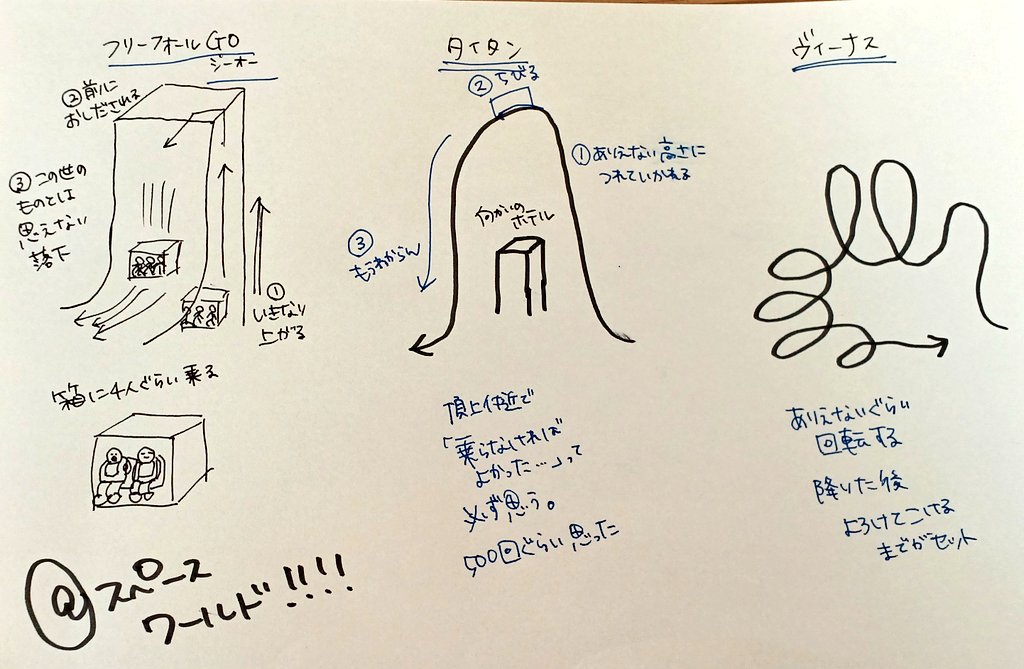 フリーフォールGO
ジーオー
②前に
おしだされる
③この世の
ものとは
思えない
落下
①
いきなり
上がる
箱に4人ぐらい乗る
@スペース
ワールド!!!!
タイタン
②ちびる
①ありえない高さに
つれていかれる
向かいの
ホテル
③
もうわからん
頂上付近で
「乗らなければ
よかった…」って
必ず思う。
500回ぐらい思った
ヴィーナス
ありえないぐらい
回転する
降りた後
よろけてこける
までがセット